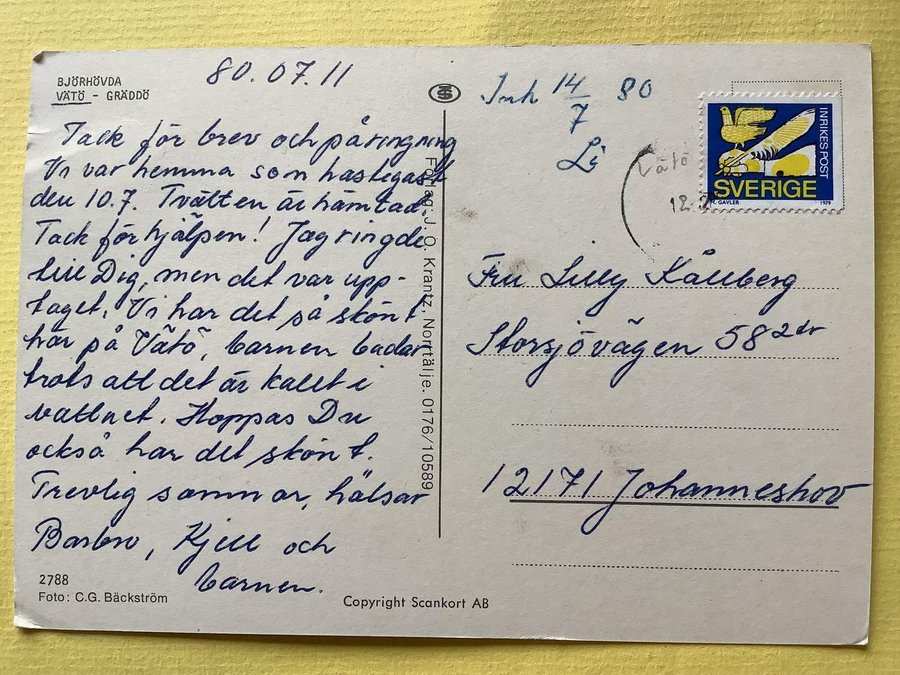 BJÖRHÖVDA
VÄTÖ - GRÄDDÖ
80.07.11
Tack för brev och påringning
Vi var hemma som hastigast
den 10.7. Tvätten är hämtad
Tack för hjälpen! Jag ringde
till Dig, men det var upp-
taget. Vi har det så skönt
här på Vätö, barnen badar
trots att det är kallt i
vattnet. Hoppas Du
också har det skönt.
Trevlig sommar, hälsar
Barbro, Kjell och
barnen.
2788
Foto: C.G. Bäckström
Förlag J. O. Krantz, Norrtälje. 0176/10589
Copyright Scankort AB
Ink 14/7 80
INRIKES POST
SVERIGE
H. GAVLER 1979
Vätö
12.
Fru Lilly Kållberg
Storsjövägen 58 2tr
12171 Johanneshov